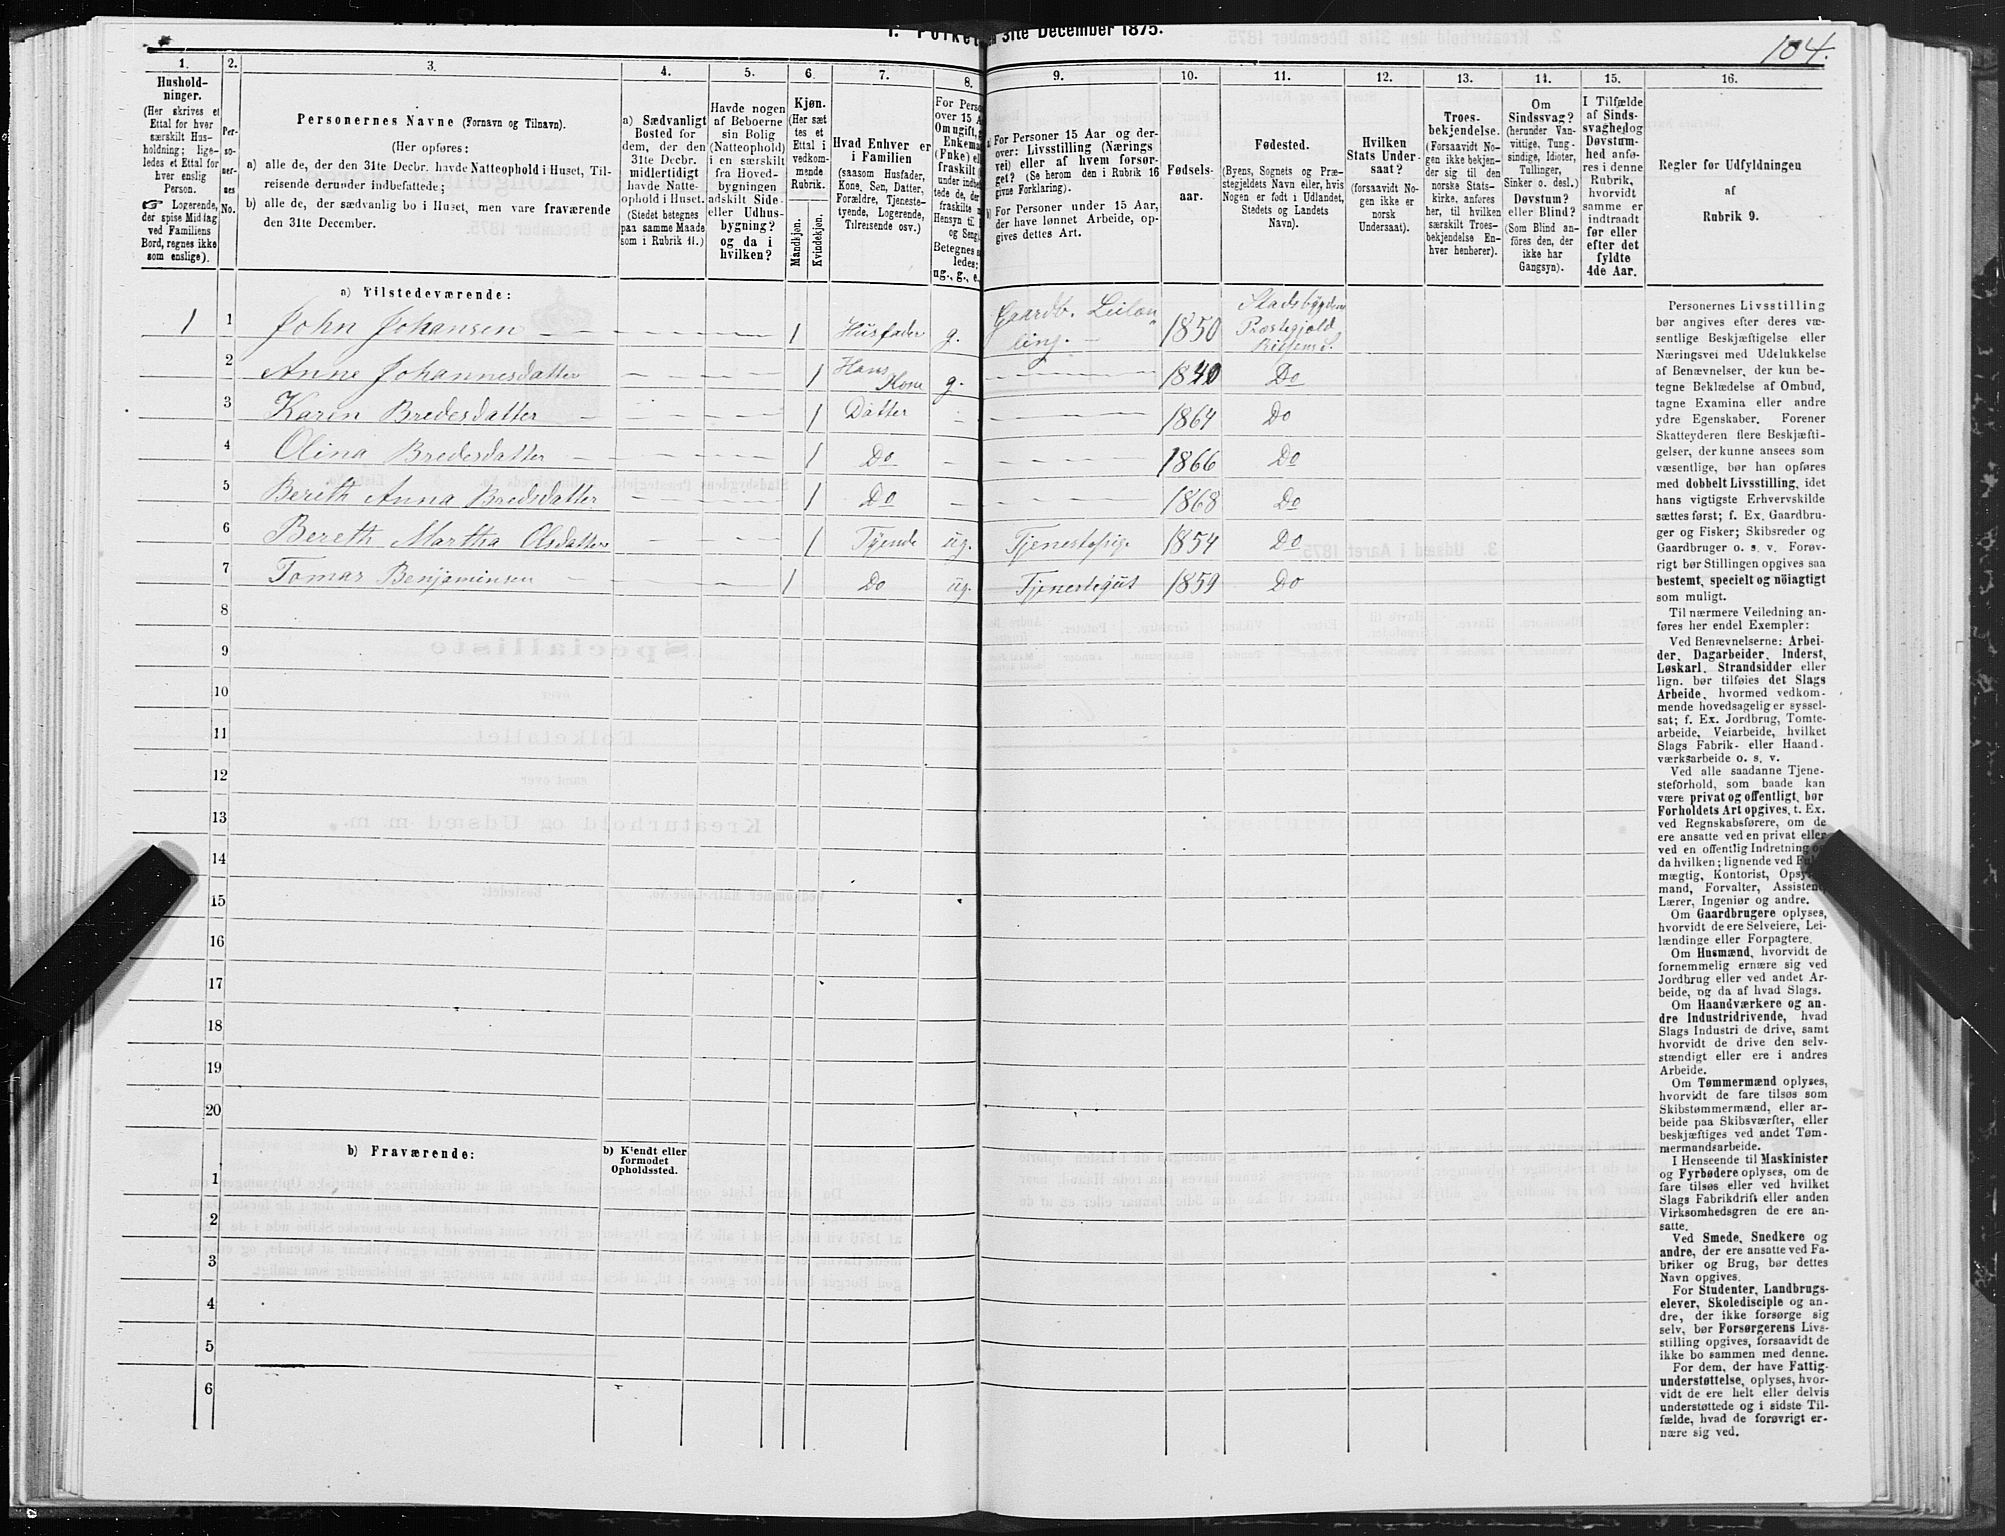 104.
31te December 1875.
1.
Hushold-
ninger.
(Her skrives et
Ettal for hver
særskilt Hus-
holdning; lige-
ledes et Ettal for
hver enslig
Person.
☞ Logerende,
der spise Middag
ved Familiens
Bord, regnes ikke
som enslige).
2.
Per-
so-
ner-
nes
No.
3.
Personernes Navne (Fornavn og Tilnavn).
(Her opføres:
a) alle de, der den 31te Decbr. havde Natteophold i Huset, Til-
reisende derunder indbefattede;
b) alle de, der sædvanlig bo i Huset, men vare fraværende
den 31te December.
4.
a) Sædvanligt
Bosted for
dem, der den
31te Decbr.
midlertidigt
havde Natte-
ophold i Huset.
(Stedet betegnes
paa samme Maade
som i Rubrik 11.)
5.
Havde nogen
af Beboerne
sin Bolig
(Natteophold)
i en særskilt
fra Hoved-
bygningen
adskilt Side-
eller Udhus-
bygning?
og da i
hvilken?
6.
Kjøn.
(Her sæt
tes et
Ettal i
vedkom-
mende
Rubrik.
Mandkjøn.
Kvindekjøn.
7.
Hvad Enhver er
i Familien
(saasom Husfader,
Kone, Søn, Datter,
Forældre, Tjeneste-
tyende, Logerende,
Tilreisende osv.)
8.
For Perso
over 15 A
Om ugift, g
Enkema
(Enke) el
fraskilt
under indbe
tede de, der
fraskilte
Hensyn til
og Seng
Betegnes
ledes:
ug., g., e.
9.
a) For Personer 15 Aar og der-
over: Livsstilling (Nærings
vei) eller af hvem forsør-
get? (Se herom den i Rubrik 16
givne Forklaring).
b) For Personer under 15 Aar,
der have lønnet Arbeide, op-
gives dettes Art.
10.
Fødsels-
aar.
11.
Fødested.
(Byens, Sognets og Præ-
stegjeldets Navn eller, hvis
Nogen er født i Udlandet,
Stedets og Landets
Navn).
12.
Hvilken
Stats Under-
saat?
(forsaavidt No-
gen ikke er
norsk
Undersaat).
13.
Troes-
bekjendelse.
(Forsaavidt No-
gen ikke bekjen-
der sig til den
norske Stats-
kirke, anføres
her, til hvilken
særskilt Troes-
bekjendelse En-
hver henhører).
14.
Om
Sindssvag?
(herunder Van-
vittige, Tung-
sindige, Idioter,
Tullinger,
Sinker o. desl.)
Døvstum?
eller Blind?
(Som Blind an-
føres den, der
ikke har
Gangsyn).
15.
I Tilfælde
af Sinds-
svaghed og
Døvstum-
hed anfø-
res i denne
Rubrik,
hvorvidt
samme er
indtraadt
før eller
efter det
fyldte
4de Aar.
16.
Regler for Udfyldningen
af
Rubrik 9.
a) Tilstedeværende:
1 1 John Johansen 1 Husfader g. Gaardb. Leilæn
ling. 1850 Stadsbygdens
Præstegjeld
Rissens S.
2 Anne Johannesdatter 1 Hans
Kone g. 1840 Do
3 Karen Bredesdatter 1 Datter 1864 Do
4 Olina Bredesdatter 1 Do 1866 Do
5 Bereth Anna Bredsdatter 1 Do 1868 Do
6 Bereth Martha Olsdatter 1 Tyende ug. Tjenestepige 1854 Do
7 Tomas Benjaminsen 1 Do ug. Tjenestegut 1859 Do
8
9
10
11
12
13
14
15
16
17
18
19
20
b) Fraværende:
b) Kjendt eller
formodet
Opholdssted.
1
2
3
4
5
6
Personernes Livsstilling
bør angives efter deres væ-
sentlige Beskjæftigelse eller
Næringsvei med Udelukkelse
af Benævnelser, der kun be-
tegne Beklædelse af Ombud,
tagne Examina eller andre
ydre Egenskaber. Forener
Skatteyderen flere Beskjæfti-
gelser, der kunne ansees som
væsentlige, bør han opføres
med dobbelt Livsstilling, idet
hans vigtigste Erhvervskilde
sættes først; f. Ex. Gaardbru-
ger og Fisker; Skibsreder og
Gaardbruger o. s. v. Forøv-
rigt bør Stillingen opgives saa
bestemt, specielt og nöiagtigt
som muligt.
Til nærmere Veiledning an-
føres her endel Exempler:
Ved Benævnelserne: Arbei-
der, Dagarbeider, Inderst,
Løskarl, Strandsidder eller
lign. bør tilføies det Slags
Arbeide, hvormed vedkom-
mende hovedsagelig er syssel-
sat; f. Ex. Jordbrug, Tomte-
arbeide, Veiarbeide, hvilket
Slags Fabrik- eller Haand-
værksarbeide o. s. v.
Ved alle saadanne Tjene-
steforhold, som baade kan
være privat og offentligt, bør
Forholdets Art opgives, t. Ex.
ved Regnskabsførere, om de
ere ansatte ved en privat eller
ved en offentlig Indretning og
da hvilken; lignende ved Ful-
mægtig, Kontorist, Opsyns-
mand, Forvalter, Assistent,
Lærer, Ingeniør og andre.
Om Gaardbrugere oplyses,
hvorvidt de ere Selveiere, Lei-
lændinge eller Forpagtere.
Om Husmænd, hvorvidt de
fornemmelig ernære sig ved
Jordbrug eller ved andet Ar-
beide, og da af hvad Slags.
Om Haandværkere og an-
dre Industridrivende, hvad
Slags Industri de drive, samt
hvorvidt de drive den selv-
stændigt eller ere i andres
Arbeide.
Om Tømmermænd oplyses,
hvorvidt de fare tilsøs som
Skibstømmermænd, eller ar-
beide paa Skibsværfter, eller
beskjæftiges ved andet Tøm-
mermandsarbeide.
I Henseende til Maskinister
og Fyrbødere oplyses, om de
fare tilsøs eller ved hvilket
Slags Fabrikdrift eller anden
Virksomhedsgren de ere an-
satte.
Ved Smede, Snedkere og
andre, der ere ansatte ved Fa-
briker og Brug, bør dettes
Navn opgives.
For Studenter, Landbrugs-
elever, Skoledisciple og an-
dre, der ikke forsørge sig
selv, bør Forsørgerens Livs-
stilling opgives, forsaavidt de
ikke bo sammen med denne.
For dem, der have Fattig-
understøttelse, oplyses, hvor-
vidt de ere helt eller delvis
understøttede og i sidste Til-
fælde, hvad de forøvrigt er-
nære sig ved.